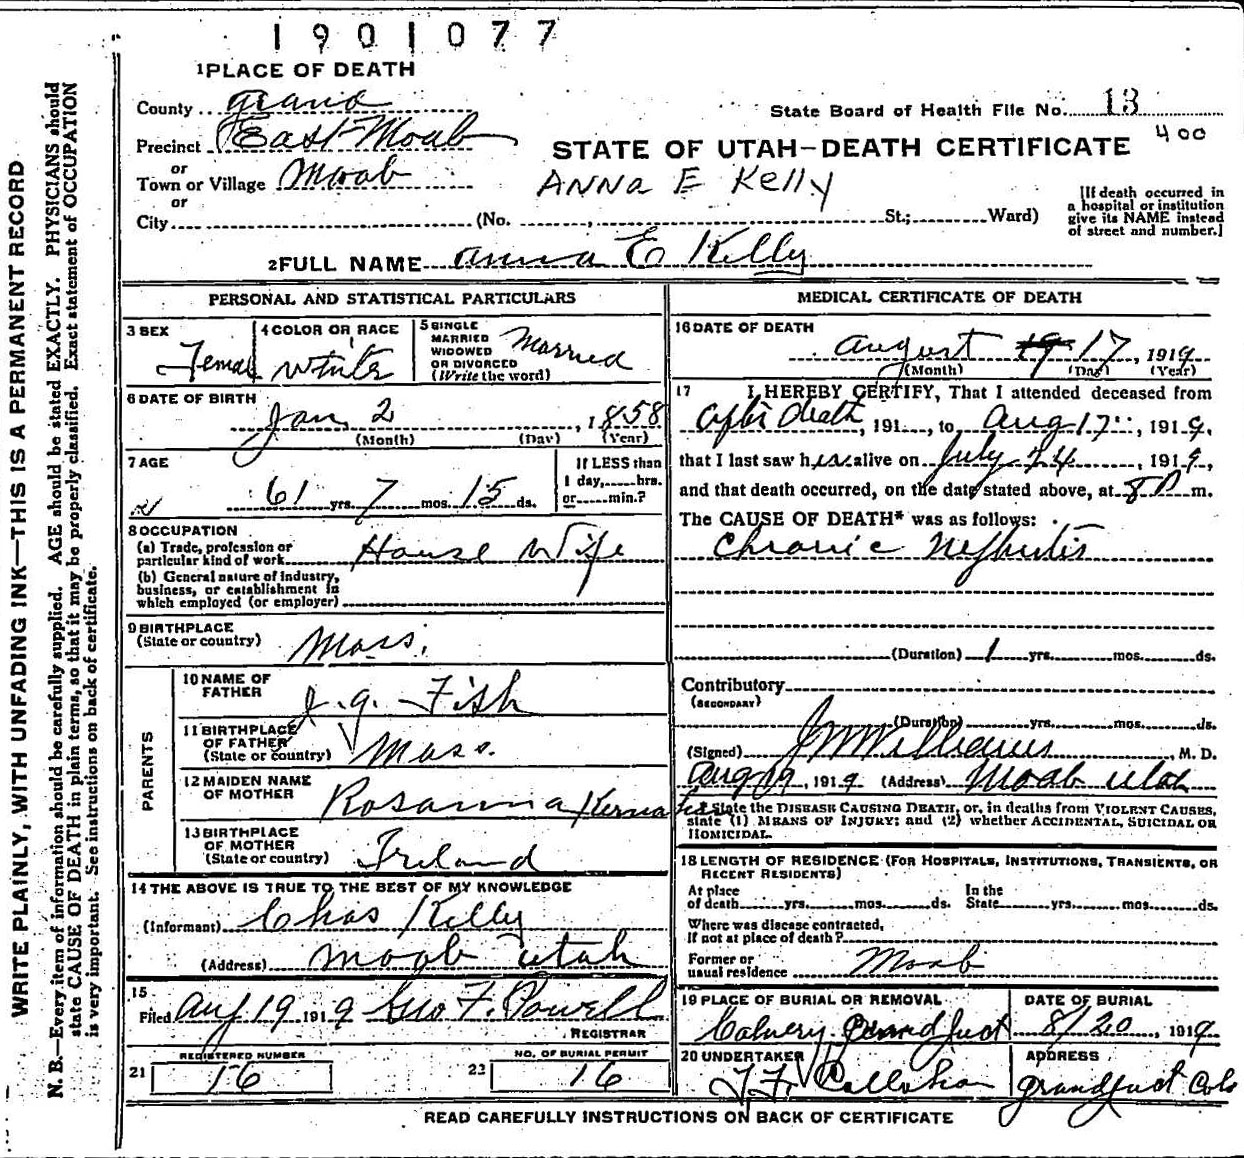 1901077
1 PLACE OF DEATH
County Grand
State Board of Health File No. 13
Precinct East Moab
400
STATE OF UTAH—DEATH CERTIFICATE
or
Town or Village Moab
ANNA E Kelly
or
City (No. , St.; Ward)
[If death occurred in
a hospital or institution
give its NAME instead
of street and number.]
2 FULL NAME Anna E Kelly
PERSONAL AND STATISTICAL PARTICULARS
3 SEX
Female
4 COLOR OR RACE
White
5 SINGLE
MARRIED
WIDOWED
OR DIVORCED
(Write the word)
Married
6 DATE OF BIRTH
Jan 2, 1858
(Month) (Day) (Year)
7 AGE
61 yrs. 7 mos. 15 ds.
If LESS than
1 day, hrs.
or min.?
8 OCCUPATION
(a) Trade, profession or
particular kind of work House Wife
(b) General nature of industry,
business, or establishment in
which employed (or employer)
9 BIRTHPLACE
(State or country) Mass.
PARENTS
10 NAME OF
FATHER J. G. Fish
11 BIRTHPLACE
OF FATHER
(State or country) Mass.
12 MAIDEN NAME
OF MOTHER Rosanna
13 BIRTHPLACE
OF MOTHER
(State or country) Ireland
14 THE ABOVE IS TRUE TO THE BEST OF MY KNOWLEDGE
(Informant) Chas Kelly
(Address) Moab Utah
15
Filed Aug 19 1919 Geo F. Powell
REGISTRAR
REGISTERED NUMBER
21 16
NO. OF BURIAL PERMIT
22 16
MEDICAL CERTIFICATE OF DEATH
16 DATE OF DEATH
August 17, 1919
(Month) (Day) (Year)
17 I HEREBY CERTIFY, That I attended deceased from
after death, 191 , to Aug 17, 1919,
that I last saw her alive on July 24, 1919,
and that death occurred, on the date stated above, at 8 P m.
The CAUSE OF DEATH* was as follows:
Chronic Nephritis
(Duration) 1 yrs. mos. ds.
Contributory
(SECONDARY)
(Duration) yrs. mos. ds.
(Signed) J W Williams, M. D.
Aug 19, 1919 (Address) Moab Utah
* State the DISEASE CAUSING DEATH, or, in deaths from VIOLENT CAUSES,
state (1) MEANS OF INJURY; and (2) whether ACCIDENTAL, SUICIDAL OR
HOMICIDAL.
18 LENGTH OF RESIDENCE (FOR HOSPITALS, INSTITUTIONS, TRANSIENTS, OR
RECENT RESIDENTS)
At place
of death yrs. mos. ds.
In the
State yrs. mos. ds.
Where was disease contracted,
If not at place of death?
Former or
usual residence Moab
19 PLACE OF BURIAL OR REMOVAL
Calvery Grand Junct
DATE OF BURIAL
8/20, 1919
20 UNDERTAKER
Callahan
ADDRESS
Grand Junct Colo
READ CAREFULLY INSTRUCTIONS ON BACK OF CERTIFICATE
WRITE PLAINLY, WITH UNFADING INK—THIS IS A PERMANENT RECORD
N. B.—Every item of information should be carefully supplied. AGE should be stated EXACTLY. PHYSICIANS should
state CAUSE OF DEATH in plain terms, so that it may be properly classified. Exact statement of OCCUPATION
is very important. See instructions on back of certificate.